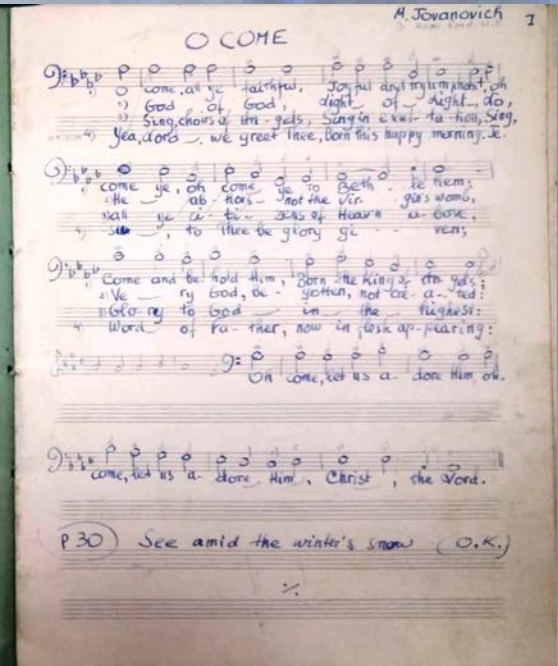 M. Jovanovich I
O COME
1) O come, all ye faithful, Joyful and tryumphant, oh
2) God of God, Light of Light, do,
3) Sing, choirs of An-gels, Sing in exul-ta-tion, Sing,
4) Yea, Lord, we greet Thee, Born this happy morning. Je-
1) come ye, oh come ye to Beth-le hem;
2) He ab-hors not the Vir-gin's womb,
3) all ye ci-ti-zens of Heav'n a-bove,
4) su, to Thee be glory gi-ven;
Come and be hold Him, Born the King of An gels;
2) Ve-ry God, be-gotten, not cre-a-ted:
3) Glo-ry to God in the Highest:
4) Word of Fa-ther, now in flesh ap-pearing:
Oh come, let us a-dore Him, oh.
come, let us a-dore Him, Christ, the Lord.
P 30 See amid the winter's snow (O.K.)